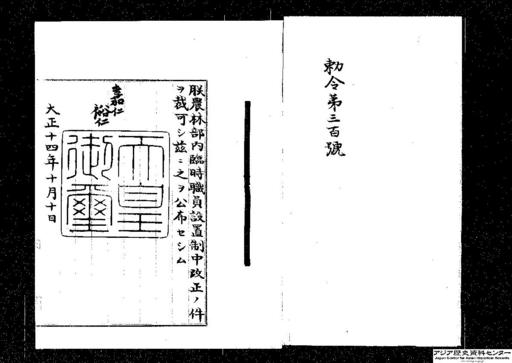 勅令第三百號
朕農林部內臨時職員設置制中改正ノ件
ヲ裁可シ茲ニ之ヲ公布セシム
嘉仁
裕仁
天皇
御璽
大正十四年十月十日
アジア歴史資料センター
Japan Center for Asian Historical Records